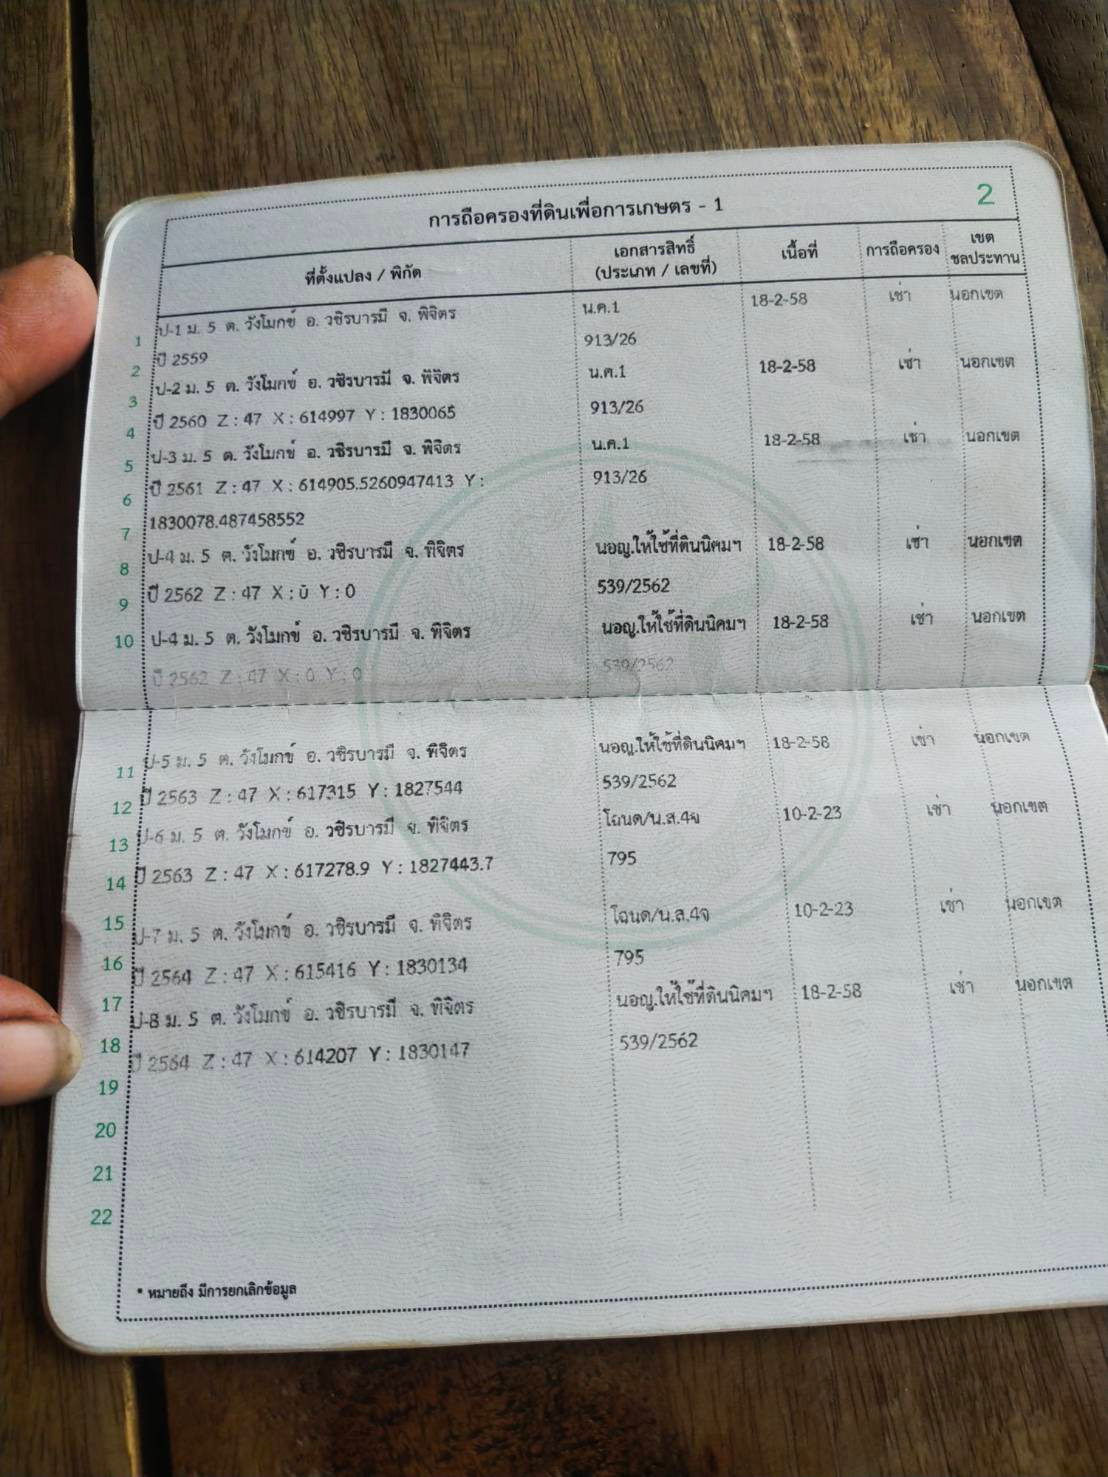 2
การถือครองที่ดินเพื่อการเกษตร - 1
ที่ตั้งแปลง / พิกัด เอกสารสิทธิ์ (ประเภท / เลขที่) เนื้อที่ การถือครอง เขตชลประทาน
ป-1 ม. 5 ต. วังโมกข์ อ. วชิรบารมี จ. พิจิตร น.ค.1 18-2-58 เช่า นอกเขต
1 ปี 2559 913/26
2 ป-2 ม. 5 ต. วังโมกข์ อ. วชิรบารมี จ. พิจิตร น.ค.1 18-2-58 เช่า นอกเขต
3 ปี 2560 Z : 47 X : 614997 Y : 1830065 913/26
4 ป-3 ม. 5 ต. วังโมกข์ อ. วชิรบารมี จ. พิจิตร น.ค.1 18-2-58 เช่า นอกเขต
5 ปี 2561 Z : 47 X : 614905.5260947413 Y : 913/26
6 1830078.487458552
7 ป-4 ม. 5 ต. วังโมกข์ อ. วชิรบารมี จ. พิจิตร นอญ.ให้ใช้ที่ดินนิคมฯ 18-2-58 เช่า นอกเขต
8 ปี 2562 Z : 47 X : 0 Y : 0 539/2562
9
10 ป-4 ม. 5 ต. วังโมกข์ อ. วชิรบารมี จ. พิจิตร นอญ.ให้ใช้ที่ดินนิคมฯ 18-2-58 เช่า นอกเขต
ปี 2562 Z : 47 X : 0 Y : 0 539/2562
11 ป-5 ม. 5 ต. วังโมกข์ อ. วชิรบารมี จ. พิจิตร นอญ.ให้ใช้ที่ดินนิคมฯ 18-2-58 เช่า นอกเขต
12 ปี 2563 Z : 47 X : 617315 Y : 1827544 539/2562
13 ป-6 ม. 5 ต. วังโมกข์ อ. วชิรบารมี จ. พิจิตร โฉนด/น.ส.4จ 10-2-23 เช่า นอกเขต
14 ปี 2563 Z : 47 X : 617278.9 Y : 1827443.7 795
15 ป-7 ม. 5 ต. วังโมกข์ อ. วชิรบารมี จ. พิจิตร โฉนด/น.ส.4จ 10-2-23 เช่า นอกเขต
16 ปี 2564 Z : 47 X : 615416 Y : 1830134 795
17 ป-8 ม. 5 ต. วังโมกข์ อ. วชิรบารมี จ. พิจิตร นอญ.ให้ใช้ที่ดินนิคมฯ 18-2-58 เช่า นอกเขต
18 ปี 2564 Z : 47 X : 614207 Y : 1830147 539/2562
19
20
21
22
* หมายถึง มีการยกเลิกข้อมูล